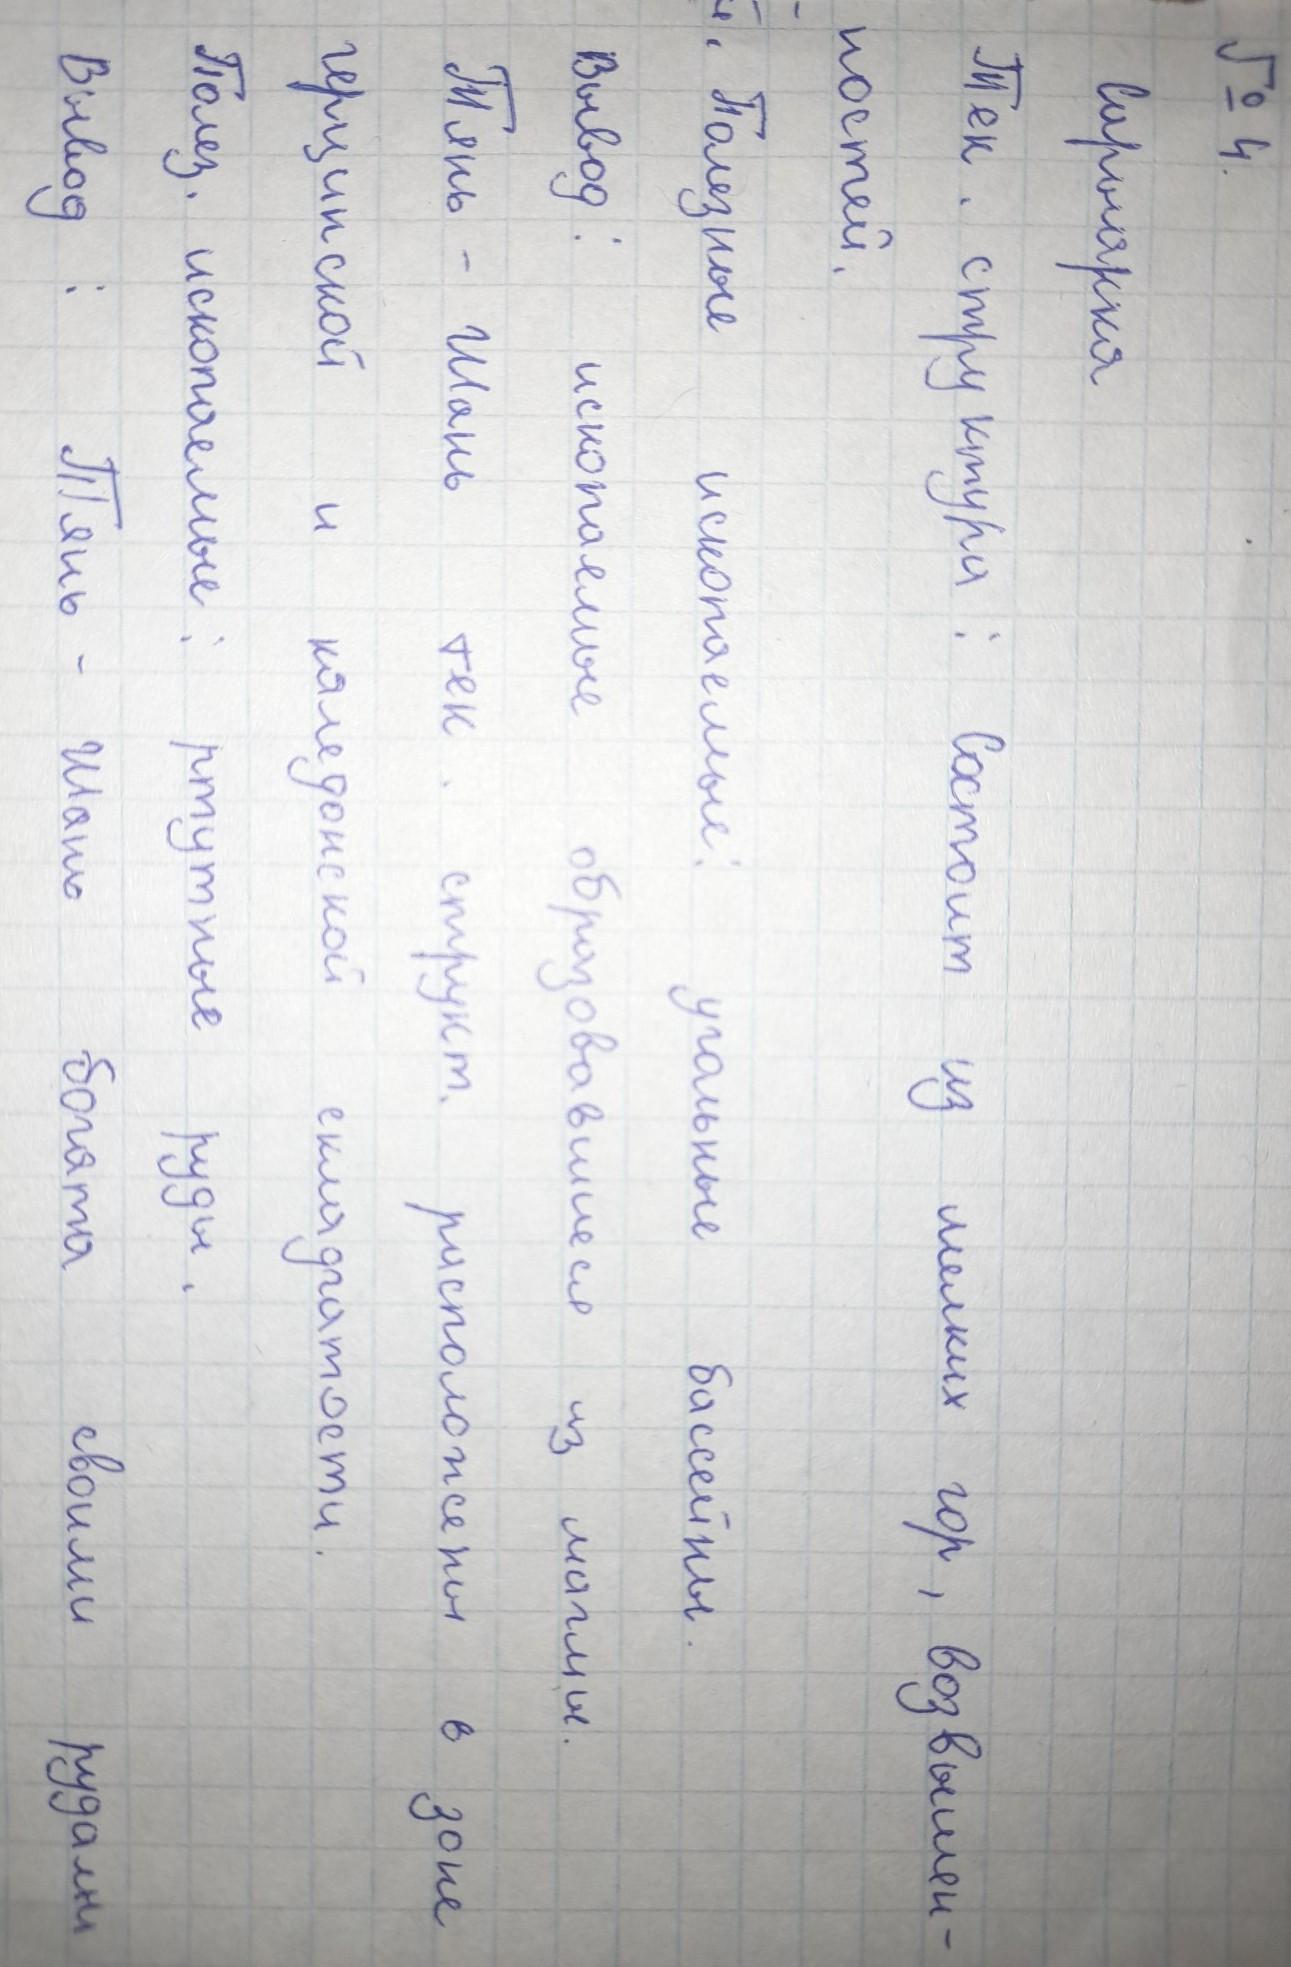 № 4.
Сарыарка
Тек. структура: Состоит из мелких гор, возвышен-
ностей.
Полезные ископаемые: угольные бассейны.
Вывод: ископаемые образовавшиеся из магмы.
Тянь - Шань тек. структ. расположены в зоне
герцинской и каледонской складчатости.
Полез. ископаемые: ртутные руды.
Вывод: Тянь - Шань богата своими рудами